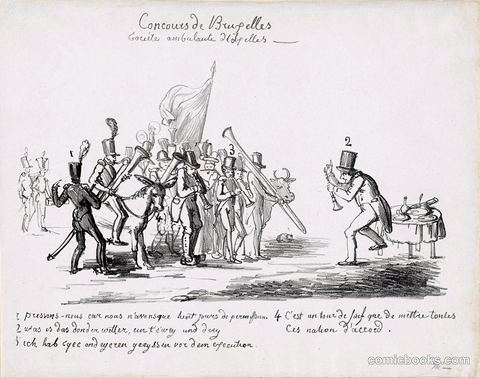 Concours de Bruxelles
Société ambulante d'Ixelles
1
2
3
1 pressons-nous car nous n'avons que huit jours de permission
2 was is das donder willer, ein t'swey und drey
3 ich hab
4 C'est un tour de juif que de mettre toutes
Ces nation d'accord
comicbooks.com